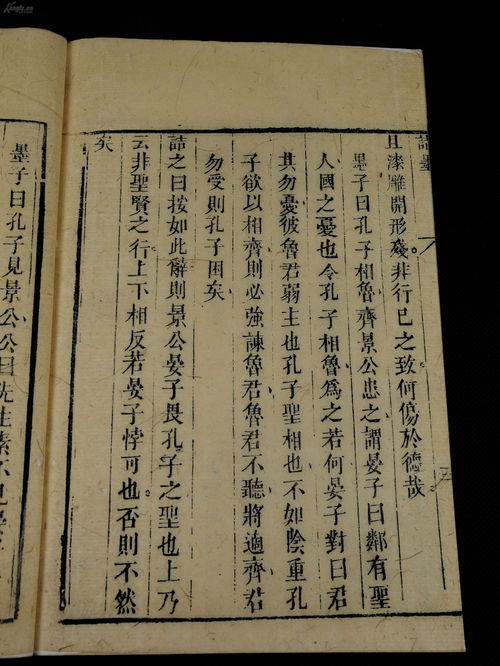 詰墨
且漆雕開形殘非行己之致何傷於德哉
墨子曰孔子相魯齊景公患之謂晏子曰鄰有聖
人國之憂也今孔子相魯為之若何晏子對曰君
其勿憂彼魯君弱主也孔子聖相也不如陰重孔
子欲以相齊則必強諫魯君魯君不聽將適齊君
勿受則孔子困矣
詰之曰按如此辭則景公晏子畏孔子之聖也上乃
云非聖賢之行上下相反若晏子悖可也否則不然
矣
墨子曰孔子見景公公曰先生素不見晏